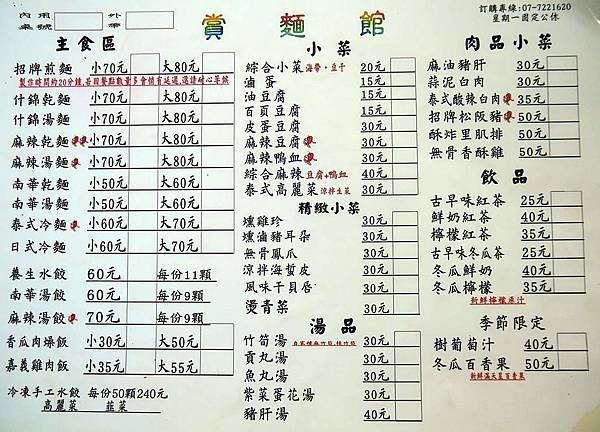 內用 外帶
桌號
賞麵館
訂購專線:07-7221620
星期一固定公休
主食區
招牌煎麵 小70元 大80元
製作時間約20分鐘,若因餐點數量多會稍有延遲,還請耐心等候
什錦乾麵 小70元 大80元
什錦湯麵 小70元 大80元
麻辣乾麵 小70元 大80元
麻辣湯麵 小70元 大80元
南華乾麵 小50元 大60元
南華湯麵 小50元 大60元
泰式冷麵 小60元 大70元
日式冷麵 小60元 大70元
養生水餃 60元 每份11顆
南華湯餃 60元 每份9顆
麻辣湯餃 70元 每份9顆
香瓜肉燥飯 小30元 大50元
嘉義雞肉飯 小35元 大55元
冷凍手工水餃 每份50顆240元
高麗菜 韮菜
小菜
綜合小菜 海帶·豆干 20元
滷蛋 15元
油豆腐 15元
百頁豆腐 30元
皮蛋豆腐 30元
麻辣豆腐 30元
麻辣鴨血 30元
綜合麻辣 豆腐+鴨血 40元
泰式高麗菜 涼拌生菜 30元
精緻小菜
燻雞珍 30元
燻滷豬耳朵 30元
無骨鳳爪 30元
涼拌海蜇皮 30元
風味干貝唇 30元
燙青菜 30元
湯品
竹筍湯 30元
貢丸湯 30元
魚丸湯 30元
紫菜蛋花湯 30元
豬肝湯 40元
肉品小菜
麻油豬肝 30元
蒜泥白肉 30元
泰式酸辣白肉 35元
招牌松阪豬 50元
酥炸里肌排 50元
無骨香酥雞 50元
飲品
古早味紅茶 25元
鮮奶紅茶 40元
檸檬紅茶 35元
古早味冬瓜茶 25元
冬瓜鮮奶 40元
冬瓜檸檬 35元
新鮮檸檬原汁
季節限定
樹葡萄汁 40元
冬瓜百香果 50元
新鮮滿天星百香果